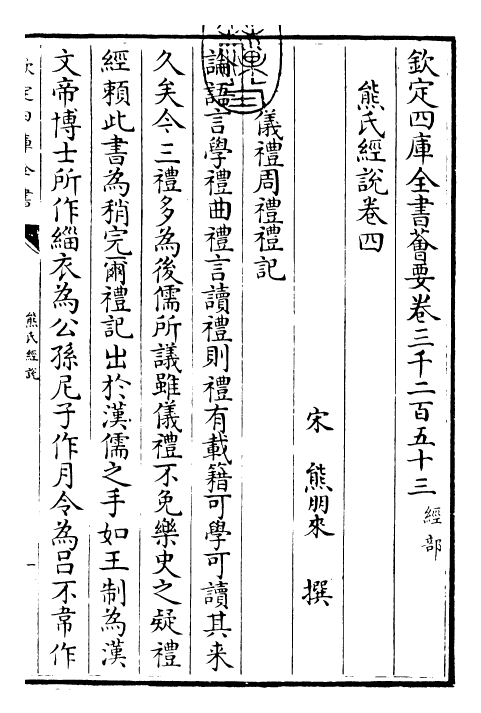 欽定四庫全書薈要卷三千二百五十三 經部
熊氏經說卷四
宋 熊朋來 撰
儀禮周禮禮記
論語言學禮曲禮言讀禮則禮有載籍可學可讀其來
久矣今三禮多為後儒所議雖儀禮不免樂史之疑禮
經賴此書為稍完爾禮記出於漢儒之手如王制為漢
文帝博士所作緇衣為公孫尼子作月令為吕不韋作
欽定四庫全書
熊氏經說
一